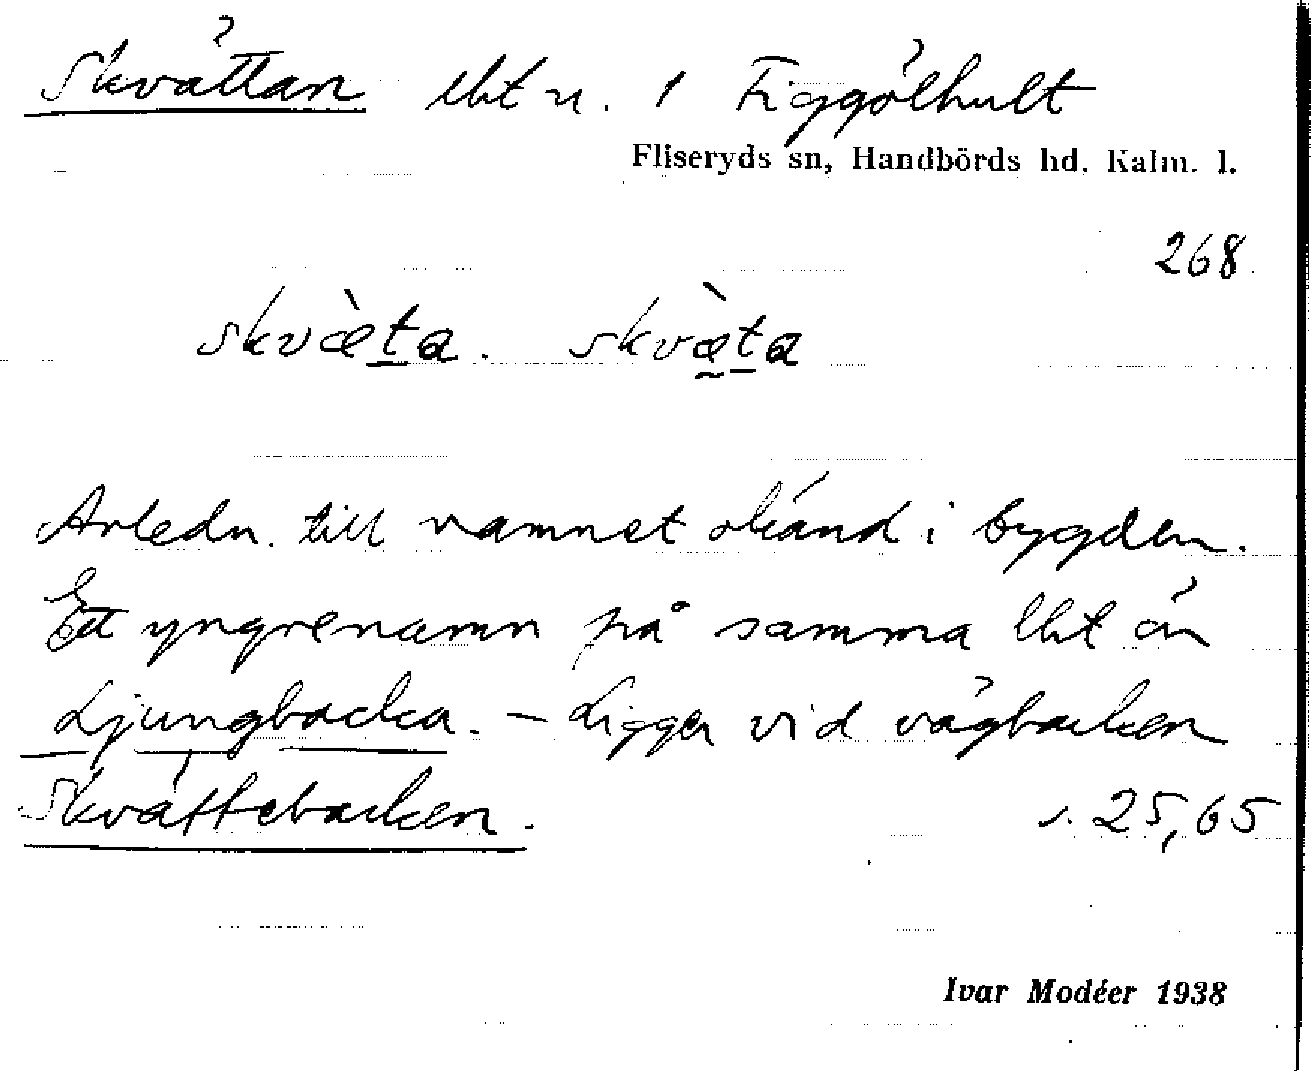 Skvättan lht u. 1 Figgölhult
Fliseryds sn, Handbörds hd. Kalm. l.
268.
skvæ̀ta. skvæ̀ta
Anledn. till namnet okänd i bygden.
Ett yngre namn på samma lht är
Ljungbacka. – Ligger vid vägbacken
Skvättebacken. s. 25, 65
Ivar Modéer 1938